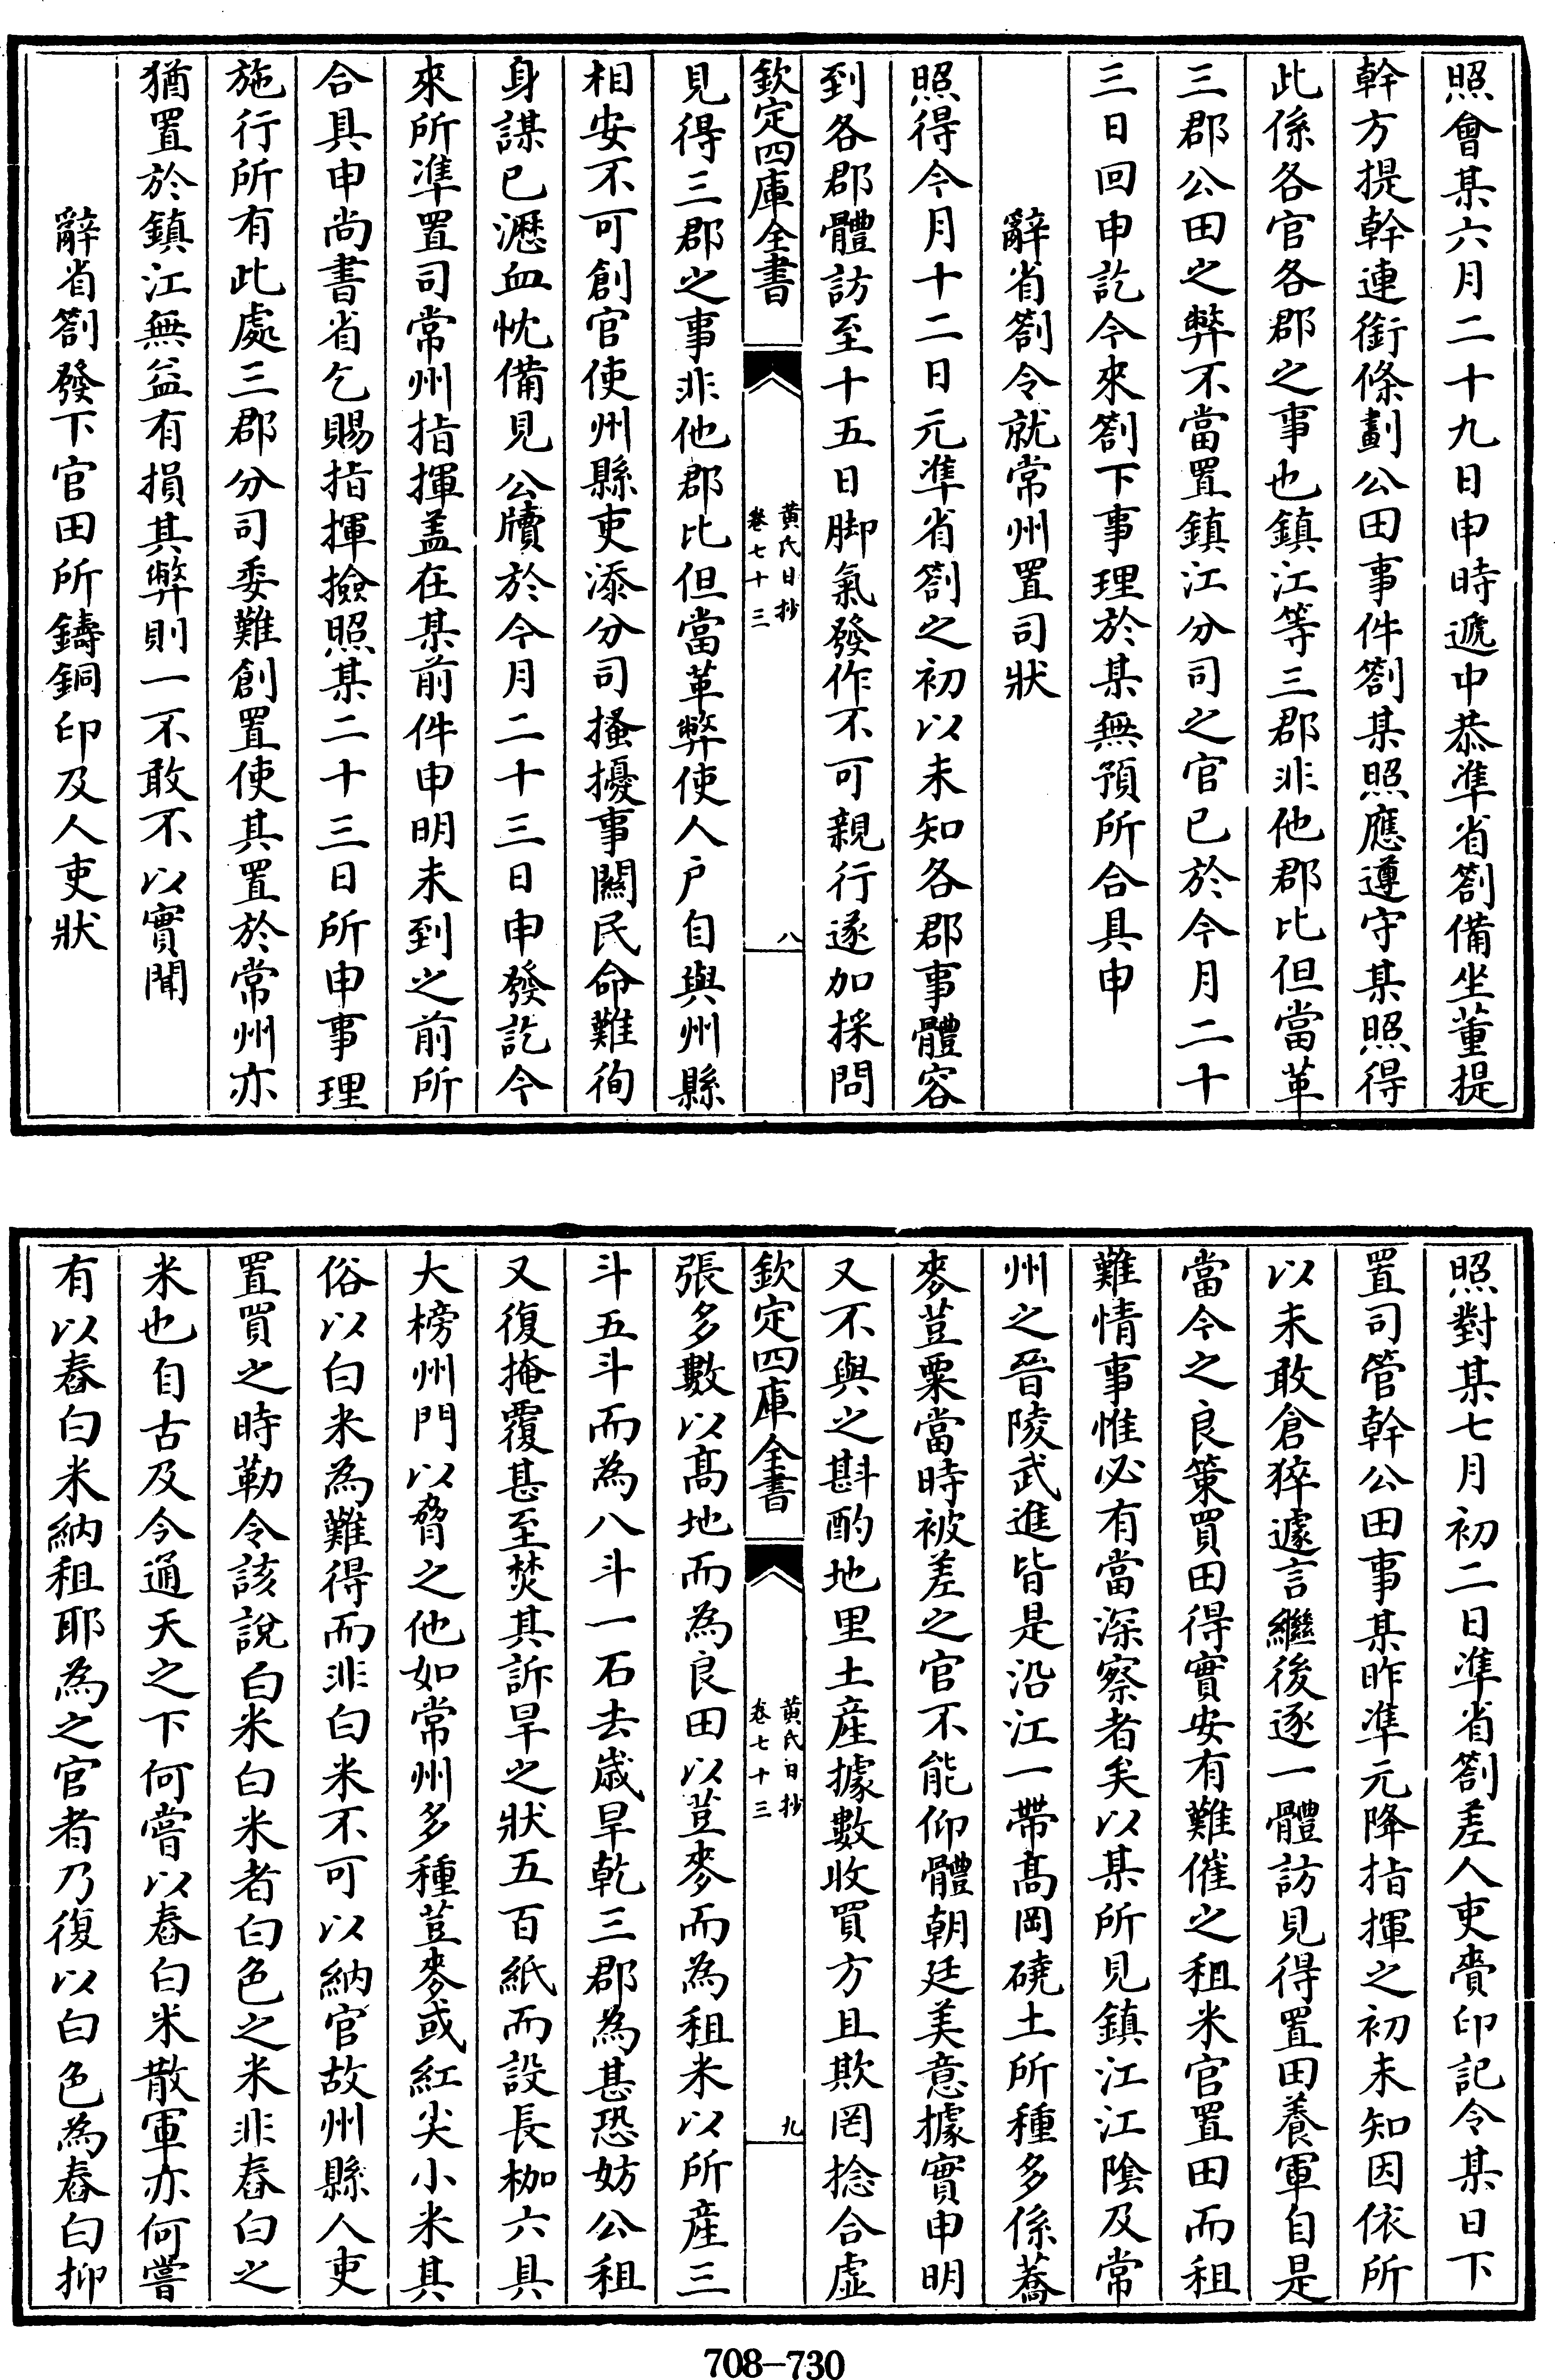 照會某六月二十九日申時遞中恭準省劄備坐董提
幹方提幹連銜條劃公田事件劄某照應遵守某照得
此係各官各郡之事也鎮江等三郡非他郡比但當革
三郡公田之弊不當置鎮江分司之官已於今月二十
三日回申訖今來劄下事理於某無預所合具申
辭省劄令就常州置司狀
照得今月十二日元準省劄之初以未知各郡事體容
到各郡體訪至十五日脚氣發作不可親行遂加採問
欽定四庫全書
黄氏日抄
卷七十三
八
見得三郡之事非他郡比但當革弊使人户自與州縣
相安不可創官使州縣吏添分司搔擾事闗民命難徇
身謀已瀝血忱備見公牘於今月二十三日申發訖今
來所準置司常州指揮盖在某前件申明未到之前所
合具申尚書省乞賜指揮撿照某二十三日所申事理
施行所有此處三郡分司委難創置使其置於常州亦
猶置於鎮江無益有損其弊則一不敢不以實聞
辭省劄發下官田所鑄銅印及人吏狀
照對某七月初二日準省劄差人吏賫印記令某日下
置司管幹公田事某昨準元降指揮之初未知因依所
以未敢倉猝遽言繼後逐一體訪見得置田養軍自是
當今之良策買田得實安有難催之租米官置田而租
難情事惟必有當深察者矣以某所見鎮江江隂及常
州之晉陵武進皆是沿江一帶髙岡磽土所種多係蕎
麥荳粟當時被差之官不能仰體朝廷美意據實申明
又不與之斟酌地里土産據數收買方且欺罔捻合虚
欽定四庫全書
黄氏日抄
卷七十三
九
張多數以髙地而為良田以荳麥而為租米以所産三
斗五斗而為八斗一石去歳旱乾三郡為甚恐妨公租
又復掩覆甚至焚其訴旱之狀五百紙而設長枷六具
大榜州門以脅之他如常州多種荳麥或紅尖小米其
俗以白米為難得而非白米不可以納官故州縣人吏
置買之時勒令該說白米白米者白色之米非舂白之
米也自古及今通天之下何嘗以舂白米散軍亦何嘗
有以舂白米納租耶為之官者乃復以白色為舂白抑
708-730